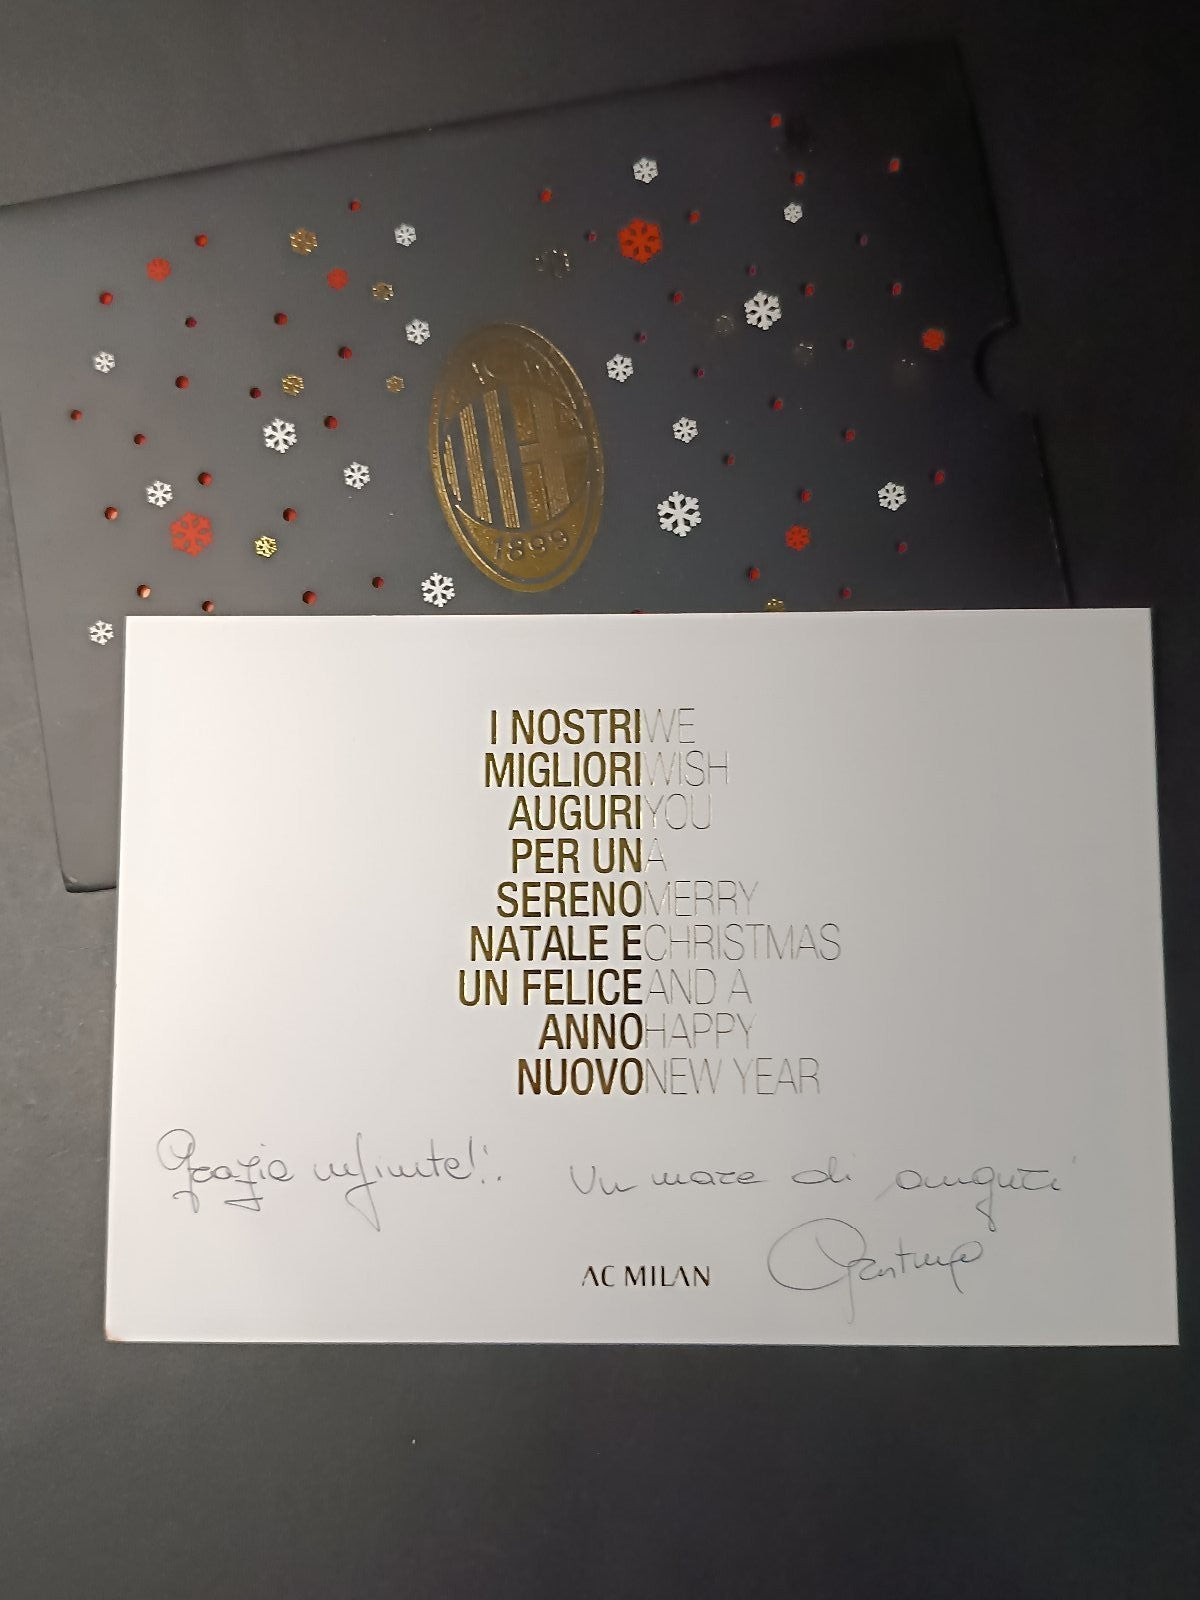 1899
I NOSTRI WE
MIGLIORI WISH
AUGURI YOU
PER UN A
SERENO MERRY
NATALE E CHRISTMAS
UN FELICE AND A
ANNO HAPPY
NUOVO NEW YEAR
Grazie infinite!! Un mare di auguri
AC MILAN